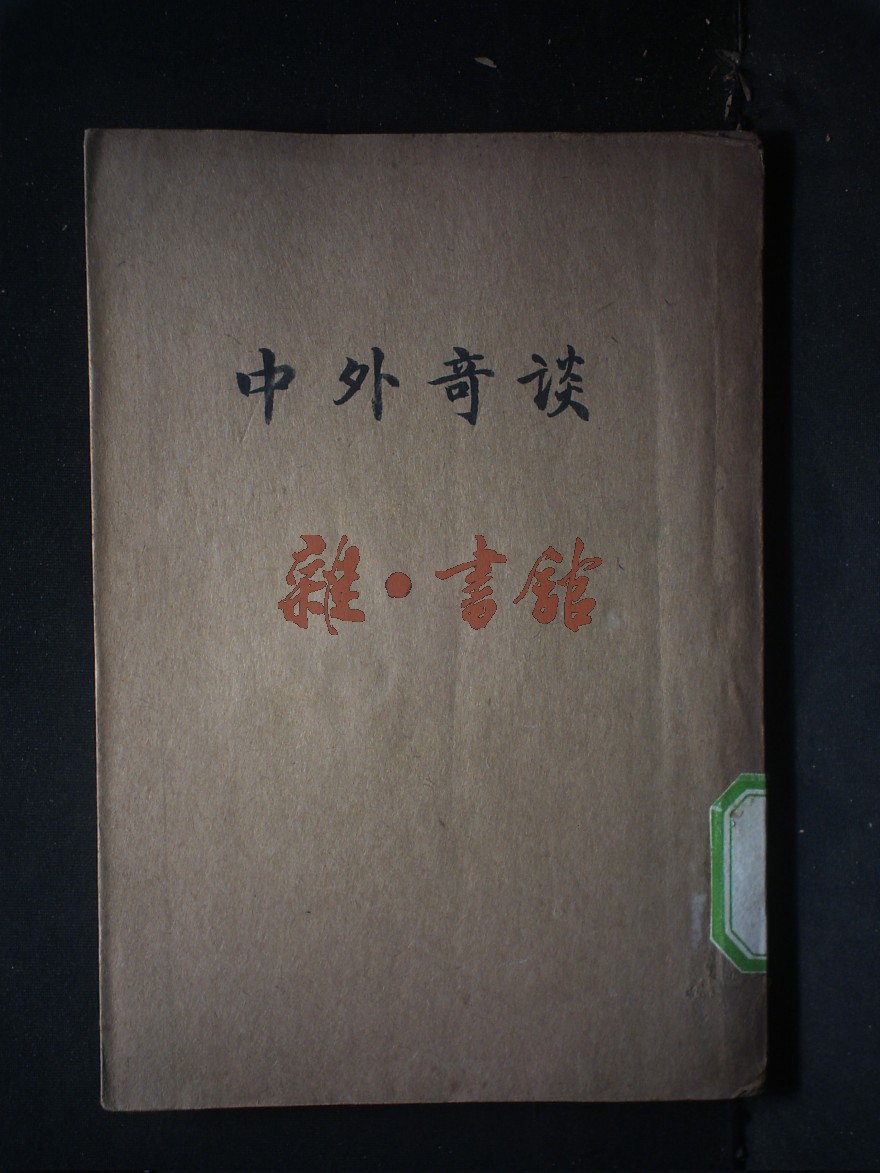 中外奇谈
雜·書館